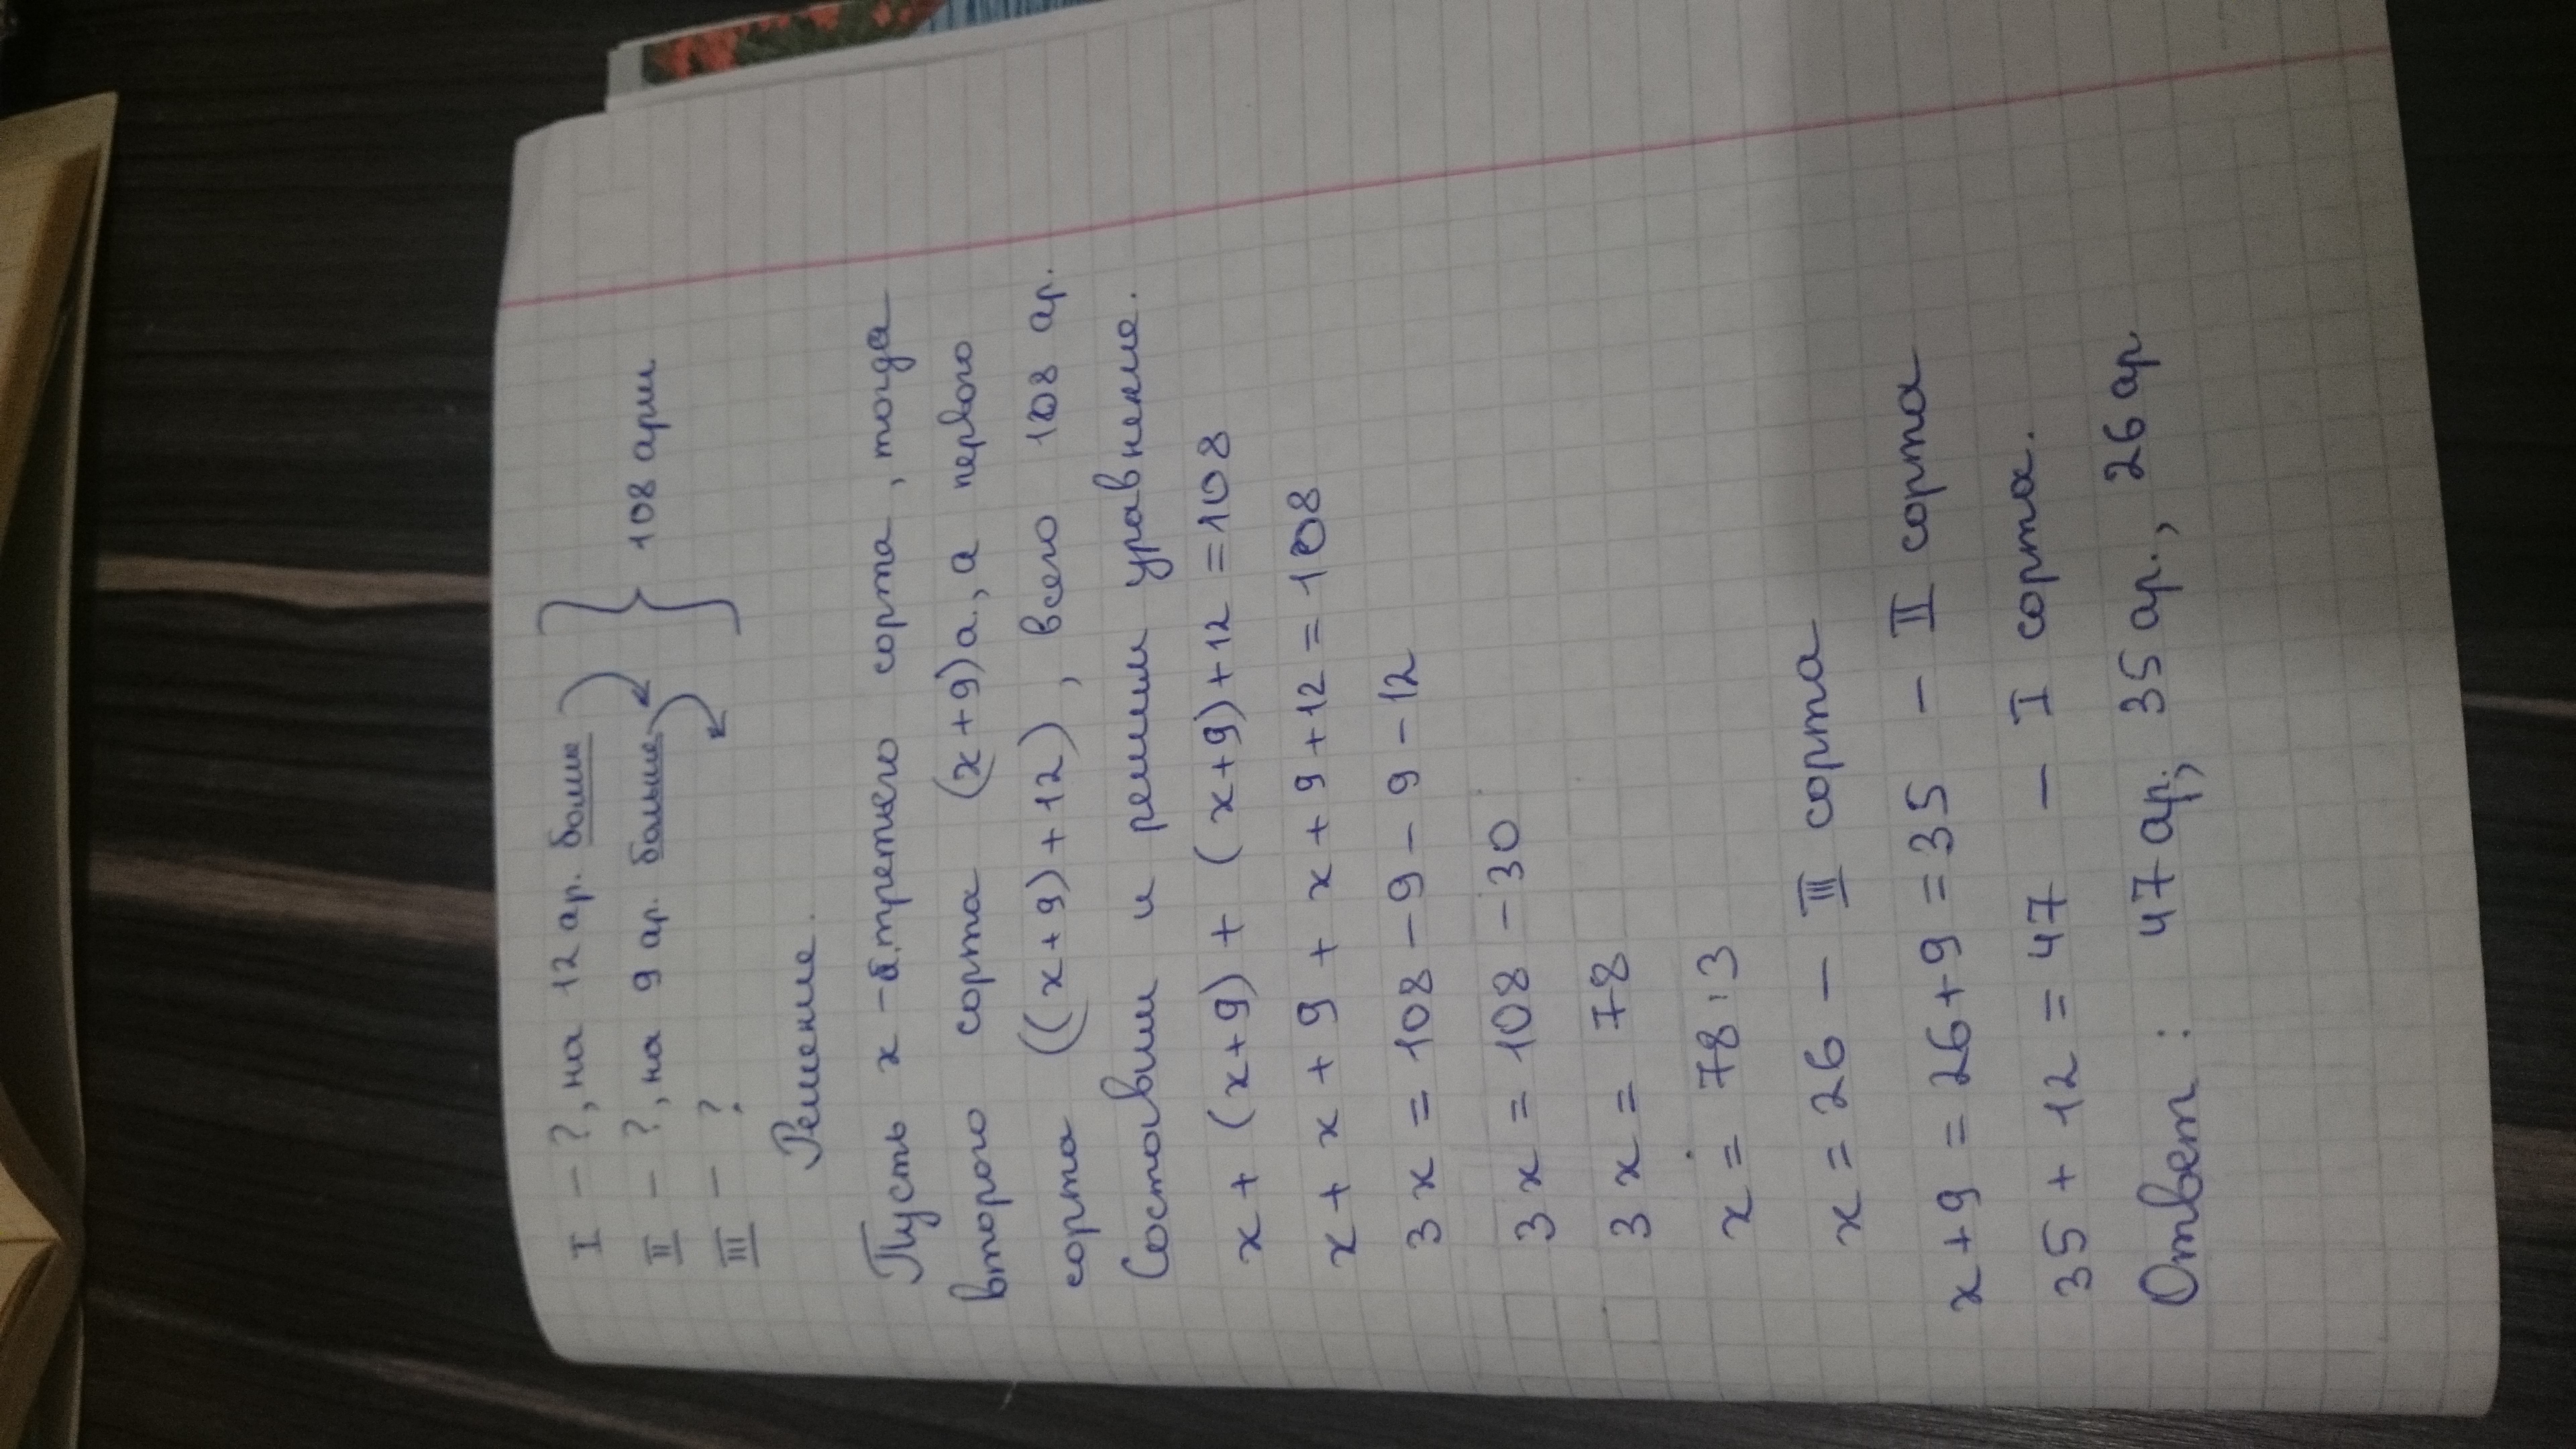 I – ?, на 12 ар. больше
II – ?, на 9 ар. больше
III – ?
108 арш
Решение.
Пусть x – а. третьего сорта, тогда
второго сорта (x+9) а., а первого
сорта ((x+9)+12), всего 108 ар.
Составим и решим уравнение.
x + (x+9) + (x+9)+12 = 108
x + x + 9 + x + 9 + 12 = 108
3x = 108 – 9 – 9 – 12
3x = 108 – 30
3x = 78
x = 78:3
x = 26 – III сорта
x + 9 = 26+9 = 35 – II сорта
35 + 12 = 47 – I сорта.
Ответ: 47 ар., 35 ар., 26 ар